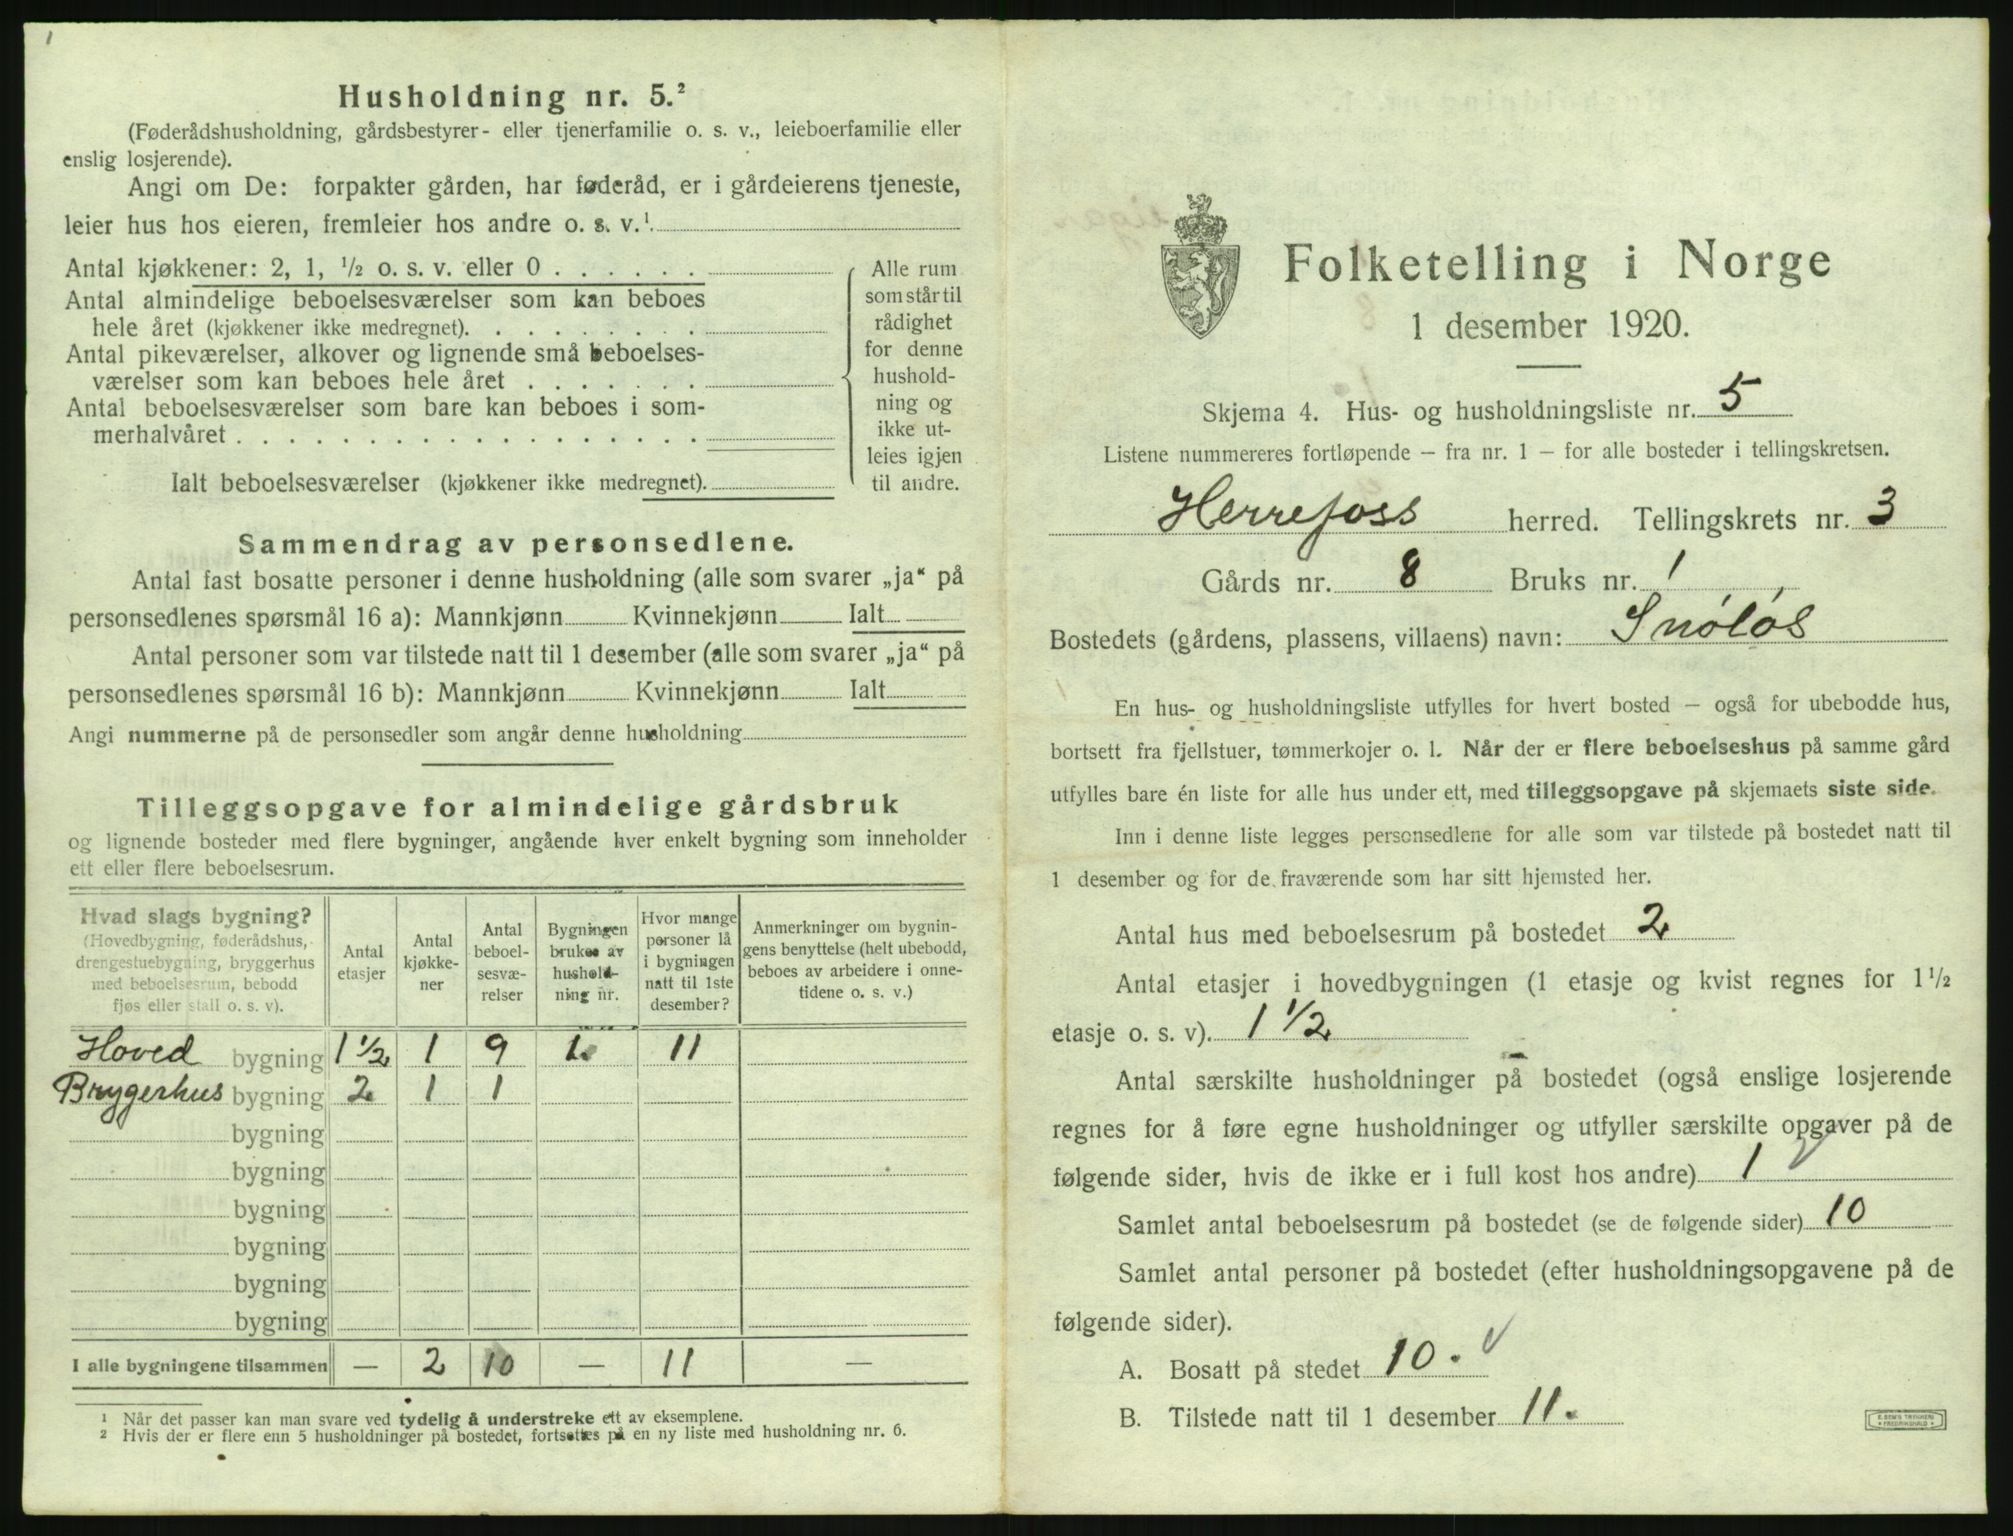 1
Husholdning nr. 5.²
(Føderådshusholdning, gårdsbestyrer- eller tjenerfamilie o. s. v., leieboerfamilie eller
enslig losjerende).
Angi om De: forpakter gården, har føderåd, er i gårdeierens tjeneste,
leier hus hos eieren, fremleier hos andre o. s. v.¹
Antal kjøkkener: 2, 1, ½ o. s. v. eller 0 . . . . . .
Antal almindelige beboelsesværelser som kan beboes
hele året (kjøkkener ikke medregnet). . . . . . . . .
Antal pikeværelser, alkover og lignende små beboelses-
værelser som kan beboes hele året . . . . . . .
Antal beboelsesværelser som bare kan beboes i som-
merhalvåret . . . . . . . . . . . . . . . . . .
Ialt beboelsesværelser (kjøkkener ikke medregnet).
Alle rum
som står til
rådighet
for denne
hushold-
ning og
ikke ut-
leies igjen
til andre.
Sammendrag av personsedlene.
Antal fast bosatte personer i denne husholdning (alle som svarer „ja“ på
personsedlenes spørsmål 16 a): Mannkjønn Kvinnekjønn Ialt
Antal personer som var tilstede natt til 1 desember (alle som svarer „ja“ på
personsedlenes spørsmål 16 b): Mannkjønn Kvinnekjønn Ialt
Angi nummerne på de personsedler som angår denne husholdning
Tilleggsopgave for almindelige gårdsbruk
og lignende bosteder med flere bygninger, angående hver enkelt bygning som inneholder
ett eller flere beboelsesrum.
Hvad slags bygning?
(Hovedbygning, føderådshus,
drengestuebygning, bryggerhus
med beboelsesrum, bebodd
fjøs eller stall o. s. v).
Antal
etasjer
Antal
kjøkke-
ner
Antal
beboel-
sesvæ-
relser
Bygningen
brukes av
hushold-
ning nr.
Hvor mange
personer lå
i bygningen
natt til 1ste
desember?
Anmerkninger om bygnin-
gens benyttelse (helt ubebodd,
beboes av arbeidere i onne-
tidene o. s. v.)
Hoved bygning 1 ½ 1 9 1. 11
Brygerhus bygning 2 1 1
bygning
bygning
bygning
bygning
bygning
bygning
I alle bygningene tilsammen — 2 10 — 11 —
¹ Når det passer kan man svare ved tydelig å understreke ett av eksemplene.
² Hvis der er flere enn 5 husholdninger på bostedet, fortsettes på en ny liste med husholdning nr. 6.
Folketelling i Norge
1 desember 1920.
Skjema 4. Hus- og husholdningsliste nr. 5
Listene nummereres fortløpende – fra nr. 1 – for alle bosteder i tellingskretsen.
Herrefoss herred. Tellingskrets nr. 3
Gårds nr. 8 Bruks nr. 1
Bostedets (gårdens, plassens, villaens) navn: Snóløs
En hus- og husholdningsliste utfylles for hvert bosted – også for ubebodde hus,
bortsett fra fjellstuer, tømmerkojer o. l. Når der er flere beboelseshus på samme gård
utfylles bare én liste for alle hus under ett, med tilleggsopgave på skjemaets siste side.
Inn i denne liste legges personsedlene for alle som var tilstede på bostedet natt til
1 desember og for de fraværende som har sitt hjemsted her.
Antal hus med beboelsesrum på bostedet 2
Antal etasjer i hovedbygningen (1 etasje og kvist regnes for 1½
etasje o. s. v). 1 ½
Antal særskilte husholdninger på bostedet (også enslige losjerende
regnes for å føre egne husholdninger og utfyller særskilte opgaver på de
følgende sider, hvis de ikke er i full kost hos andre) 1
Samlet antal beboelsesrum på bostedet (se de følgende sider) 10
Samlet antal personer på bostedet (efter husholdningsopgavene på de
følgende sider).
A. Bosatt på stedet 10.
B. Tilstede natt til 1 desember 11.
E. SEM'S TRYKKERI
FREDRIKSHALD